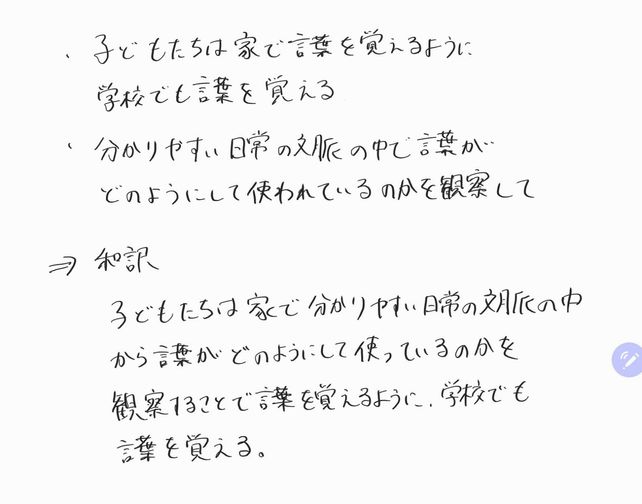 ・子どもたちは家で言葉を覚えるように
学校でも言葉を覚える
・分かりやすい日常の文脈の中で言葉が
どのようにして使われているのかを観察して
⇒ 和訳
子どもたちは家で分かりやすい日常の文脈の中
から言葉がどのようにして使っているのかを
観察することで言葉を覚えるように、学校でも
言葉を覚える。